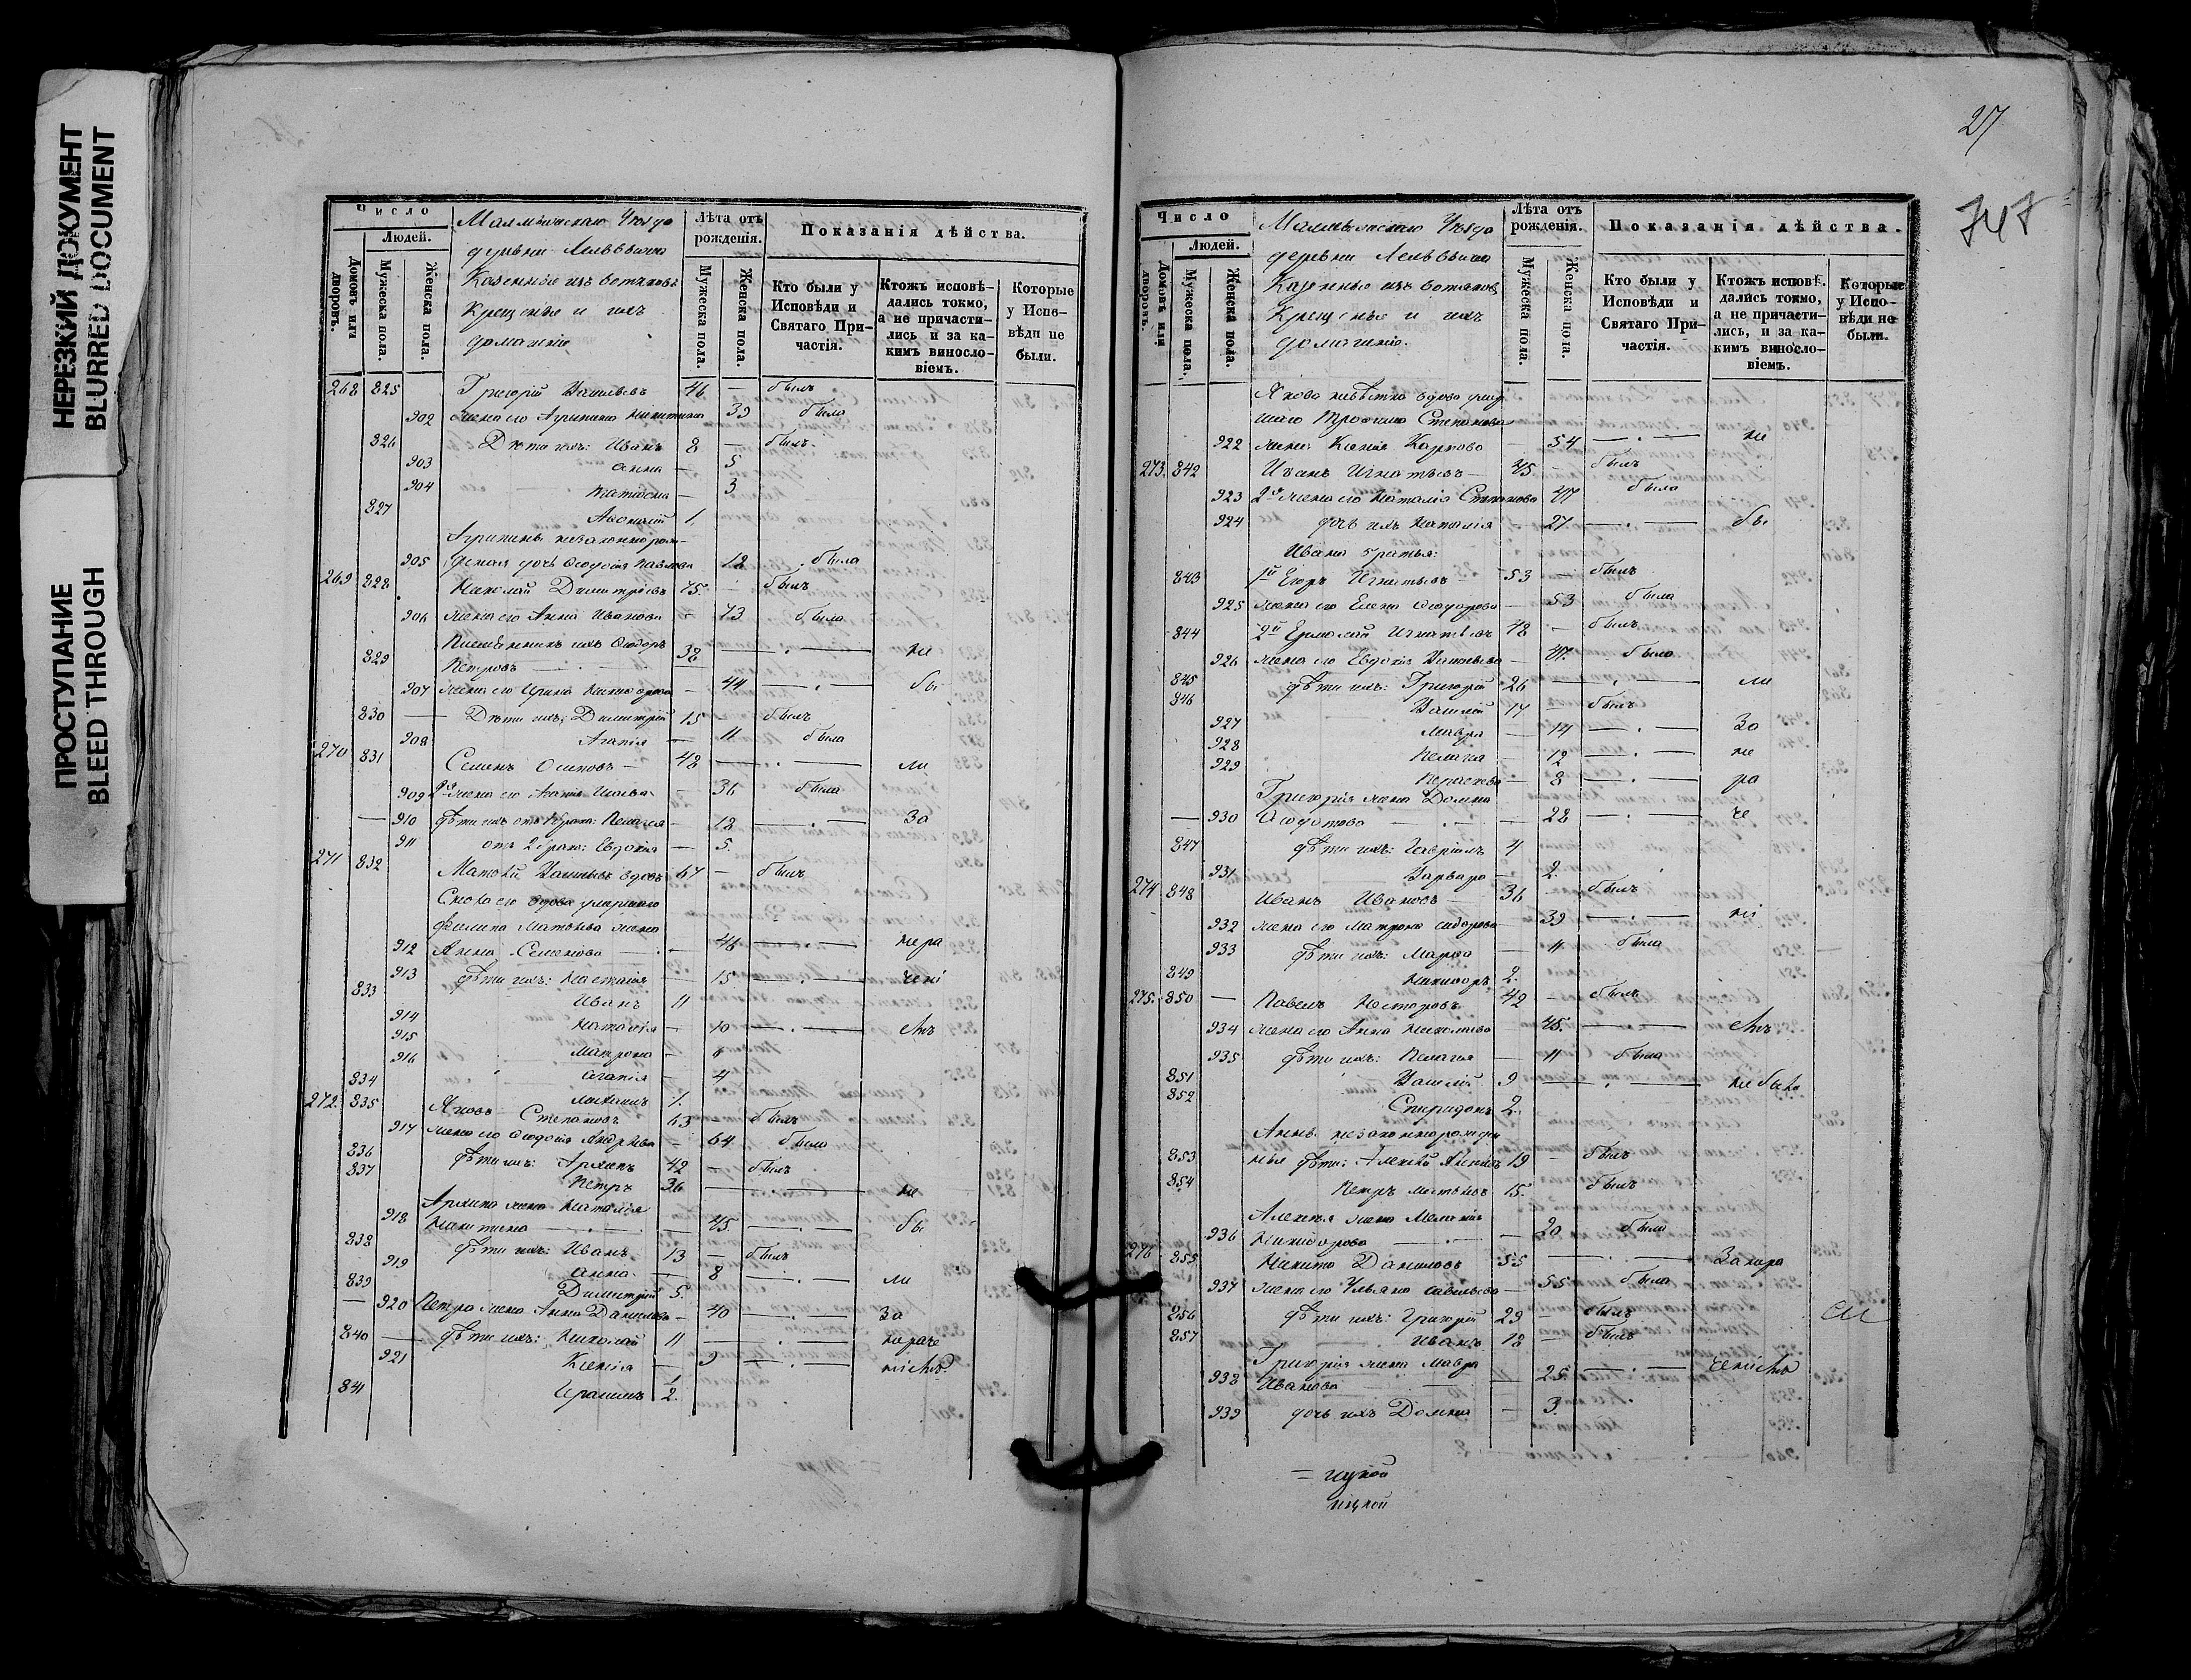 НЕРЕЗКИЙ ДОКУМЕНТ
BLURRED DOCUMENT
ПРОСТУПАНИЕ
BLEED THROUGH
Число
Людей.
Домовъ или дворовъ.
Мужеска пола.
Женска пола.
Малмыжскаго Уѣзда
деревни
Казенные изъ вотяковъ
Крещеные и ихъ
домашніе
Лѣта отъ рожденія.
Мужеска пола.
Женска пола.
Показанія дѣйства.
Кто были у Исповѣди и Святаго Причастія.
Ктожъ исповѣдались токмо, а не причастились и за какимъ винословіемъ.
Которые у Исповѣди не были.
268 825 Григорій Васильевъ 46 — былъ
902 жена его Агрипина Никитина 39 была
826 Дѣти ихъ: Иванъ 8 — былъ
903 Анна — 5
904 — 3
827 1
Агрипины незаконнорож-
905 деная дочь Ѳеодосія 18 была
269 828 Николай Димитріевъ 75. — былъ
906 жена его Анна Иванова — 73 была
Племянникъ ихъ Ѳеодоръ
829 Петровъ — 38 — не
907 жена его Ирина — 44 — бы
830 — Дѣти ихъ: Димитрій 15 былъ
908 Агапія — 11 была
270 831 Семенъ Осиповъ — 48 — ли
909 2я жена его — 36 была
— 910 дѣти ихъ отъ 1 брака: Пелагея — 18 — За
911 отъ 2 брака: Евдокія — 5.
271 832 Матвѣй Васильевъ вдовъ 67 — былъ
Сноха его вдова умершаго
Филипа Матвѣева жена
912 Анна Семенова — 46 — нера
913 дѣти ихъ: Настасія — 15 — чені
833 Иванъ 11
914 Наталія — 10 — емъ
915 Матрона — 6
916 Агапія — 4
834 1.
272. 835 Яковъ Степановъ 63 — былъ
917 жена его Ѳеодосія Андрѣева — 64 была
836 дѣти ихъ: Архипъ 42 — былъ
837 Петръ 36 — не
Архипа жена Наталія
918 Никитина — 45. — бы
838 дѣти ихъ: Иванъ 13 — былъ
919 Анна — 8 — ли
839 Димитрій 5.
— 920 Петра жена Анна Данилова — 40 — За
840 — дѣти ихъ: Николай 11 — нераче
921 Ксенія — 9 — ніемъ
841 2.
27
747
Число
Людей.
Домовъ или дворовъ.
Мужеска пола.
Женска пола.
Малмыжскаго Уѣзда
деревни
Казенные изъ вотяковъ
Крещеные и ихъ
домашніе.
Лѣта отъ рожденія.
Мужеска пола.
Женска пола.
Показанія дѣйства.
Кто были у Исповѣди и Святаго Причастія.
Ктожъ исповѣдались токмо, а не причастились, и за какимъ винословіемъ.
Которые у Исповѣди не были.
Якова невѣстка вдова умер
шаго Трофима Степанова
922 жена Ксенія Карпова — 54 — не
273. 842 Иванъ Игнатьевъ — 45. — былъ
923 2я жена его Наталія Степанова 47 была
924 дочь ихъ Наталія — 27 — бы
Ивана братья:
843 1й Егоръ Игнатьевъ — 53 — былъ
925 жена его Елена Ѳеодорова — 53 была
844 2й Ермолай Игнатьевъ 48 — былъ
926 жена его Евдокія Васильева — 47. была
845 дѣти ихъ: Григорій 26 — ли
846 Василій 17 — былъ
927 Мавра — 14 — За
928 Пелагія 12 — не
929 Параскева — 8 — ра
Григорія жена Домна
— 930 — 28 — че
847 дѣти ихъ: Гавріилъ 4
931 Варвара — 2.
274 848 Иванъ Ивановъ — 36 — былъ
932 жена его Матрона — 39 — ні
933 дѣти ихъ: Марѳа — 11 была
849 Никифоръ 2.
275. 850 — Павелъ Несторовъ 42 — былъ
934 жена его Анна Николаева 45. — емъ
935 дѣти ихъ: Пелагія — 11 была
851 Василій 9 — не были
852 Спиридонъ 2.
Анны незаконнорожден
853 ныя дѣти: Алексѣй 19 — былъ
854 Петръ 15. былъ
Алексѣя жена Меланія
936 — 20 была
276 855 Никита Даниловъ 55 — Занера
937 жена его Ульяна Савельева — 55 была
856 дѣти ихъ: Григорій 29 — былъ
857 Иванъ 18 — былъ
Григорія жена Мавра
938 Иванова — 25. — ченіемъ
939 дочь ихъ Домна — 3.